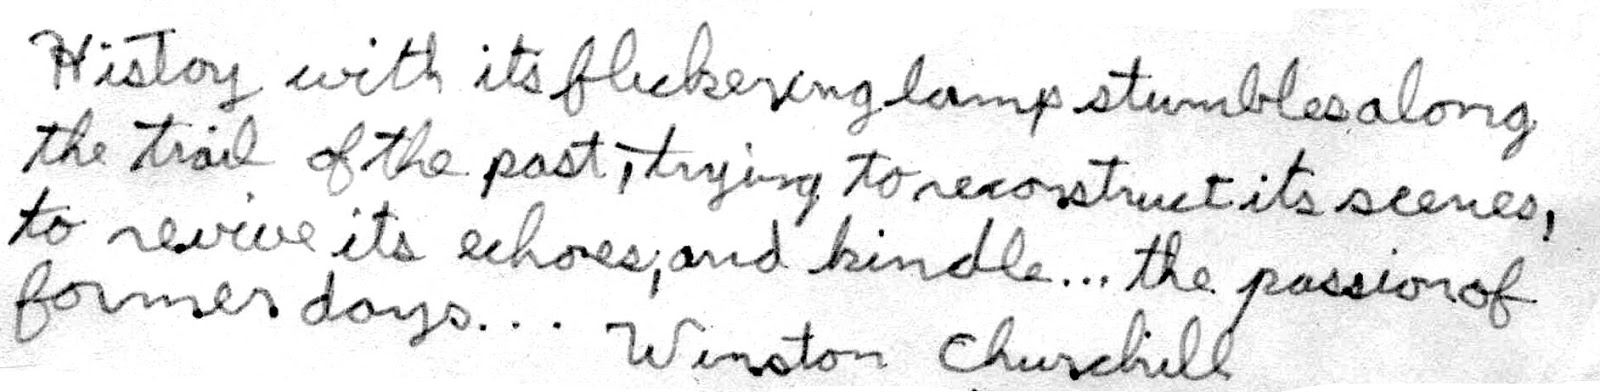 History with its flickering lamp stumbles along
the trail of the past, trying to reconstruct its scenes,
to revive its echoes, and kindle... the passion of
former days... Winston Churchill